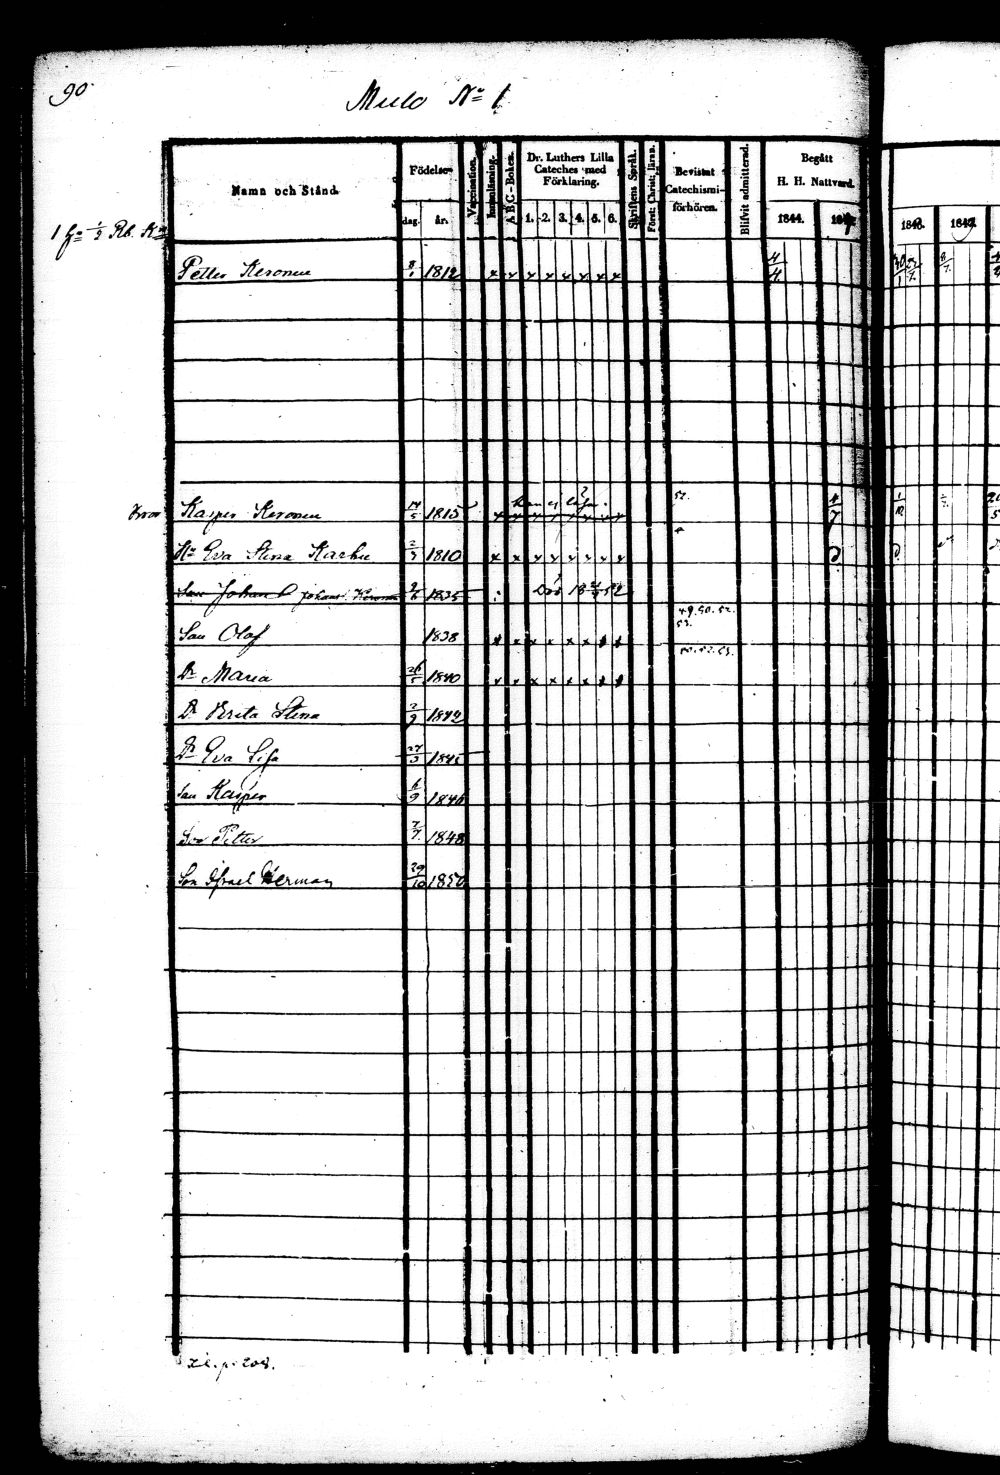 90
Mulo No 1
Namn och Stånd
Födelse-
dag. år.
Vaccination.
Innanläsning.
ABC-Boken.
Dr. Luthers Lilla Cateches med Förklaring.
1. 2. 3. 4. 5. 6.
Skriftens Språk.
Först: Christ: läran.
Bevistat Catechismi-förhören.
Blifvit admitterad.
Begått H. H. Nattvard.
1844.
1 1/2 Rb.
Petter Keronen 8/1 1812 x x x x x x x x 4/4
Kasper Keronen 14/5 1815 kan ej läsa. x x x x x x x x 52. 4/7
Hu Eva Stina Karhu 2/3 1810 x x x x x x x x
Son Johan Johan Keronen 1835 Död 52
49. 50. 52. 53.
Son Olof 1838 x x x x x x x x
50. 52. 53.
Dr Maria 26/5 1840 x x x x x x x x
Dr Brita Stina 2/9 1842
Dr Eva Lisa 27/3 1845
Son Kasper 6/9 1846
Son Petter 7/7 1848
Son Israel Herman 29/10 1850
p. 208.